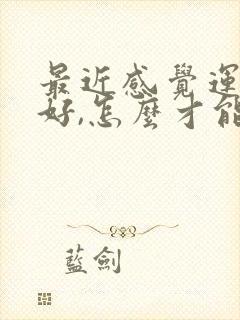 最近感覺運
好,怎麼才能
藍劍